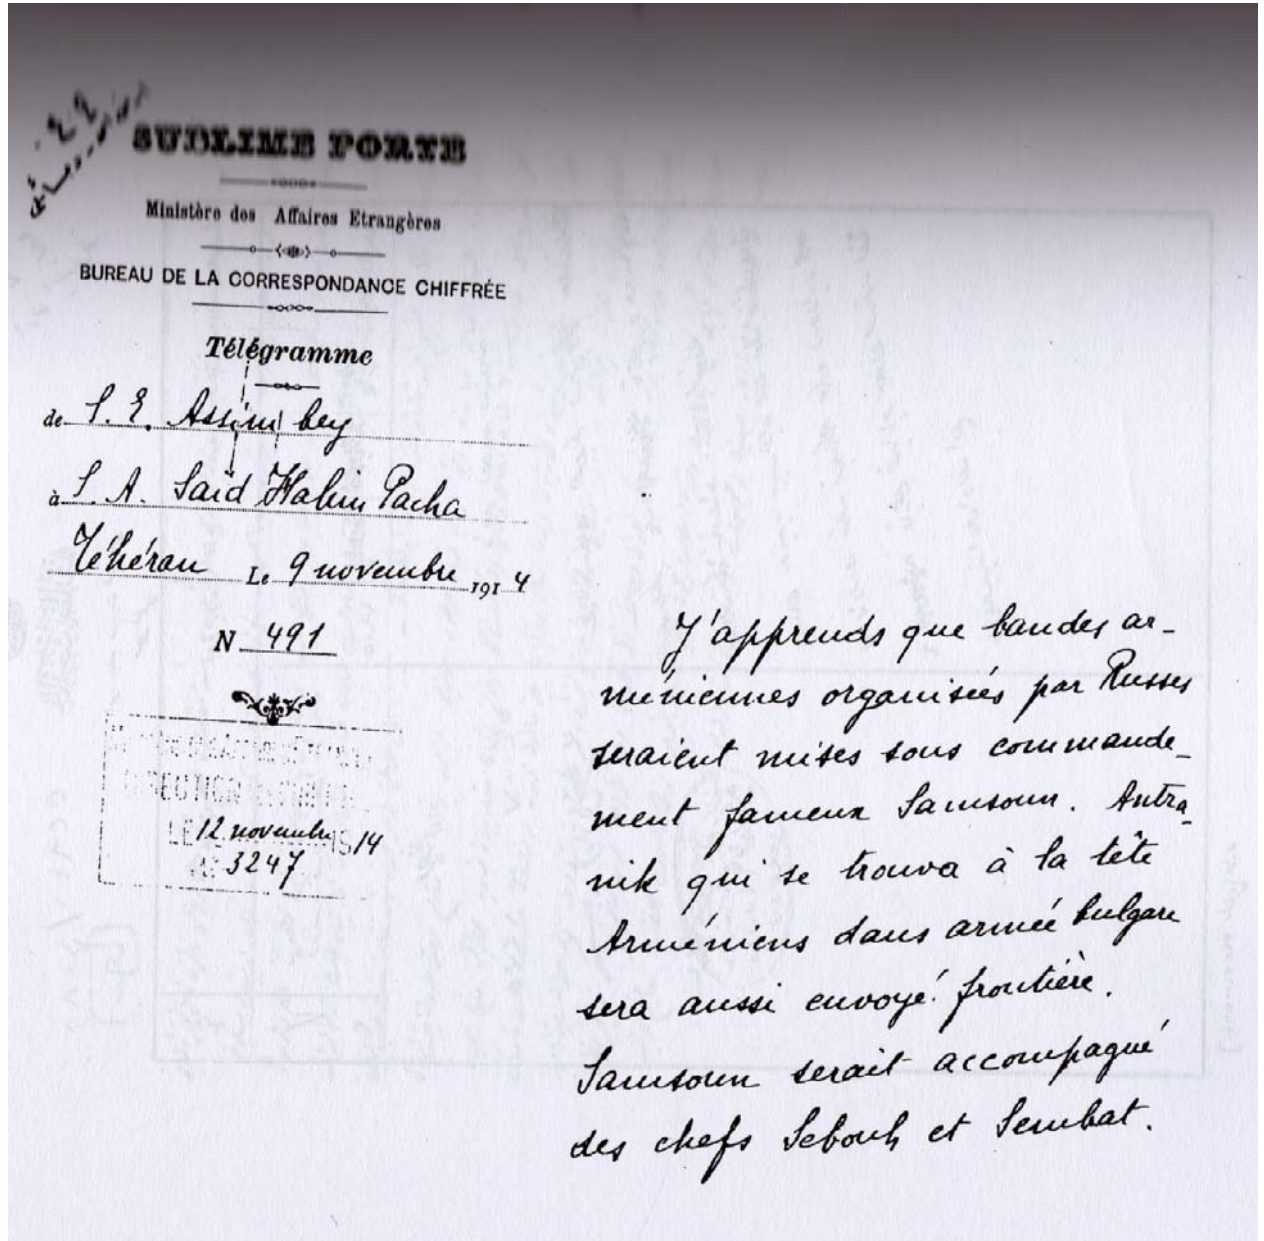 SUBLIME PORTE
Ministère des Affaires Etrangères
BUREAU DE LA CORRESPONDANCE CHIFFRÉE
Télégramme
de S. E. Assim bey
à S. A. Saïd Halim Pacha
Téhéran Le 9 novembre 1914
N 491
LE 12 novembre 1914
3247
J'apprends que bandes ar-
méniennes organisées par Russes
seraient mises sous commande-
ment fameux Samsoun. Antra-
nik qui se trouva à la tête
Arméniens dans armée bulgare
sera aussi envoyé frontière.
Samsoun serait accompagné
des chefs Sebouh et Sembat.